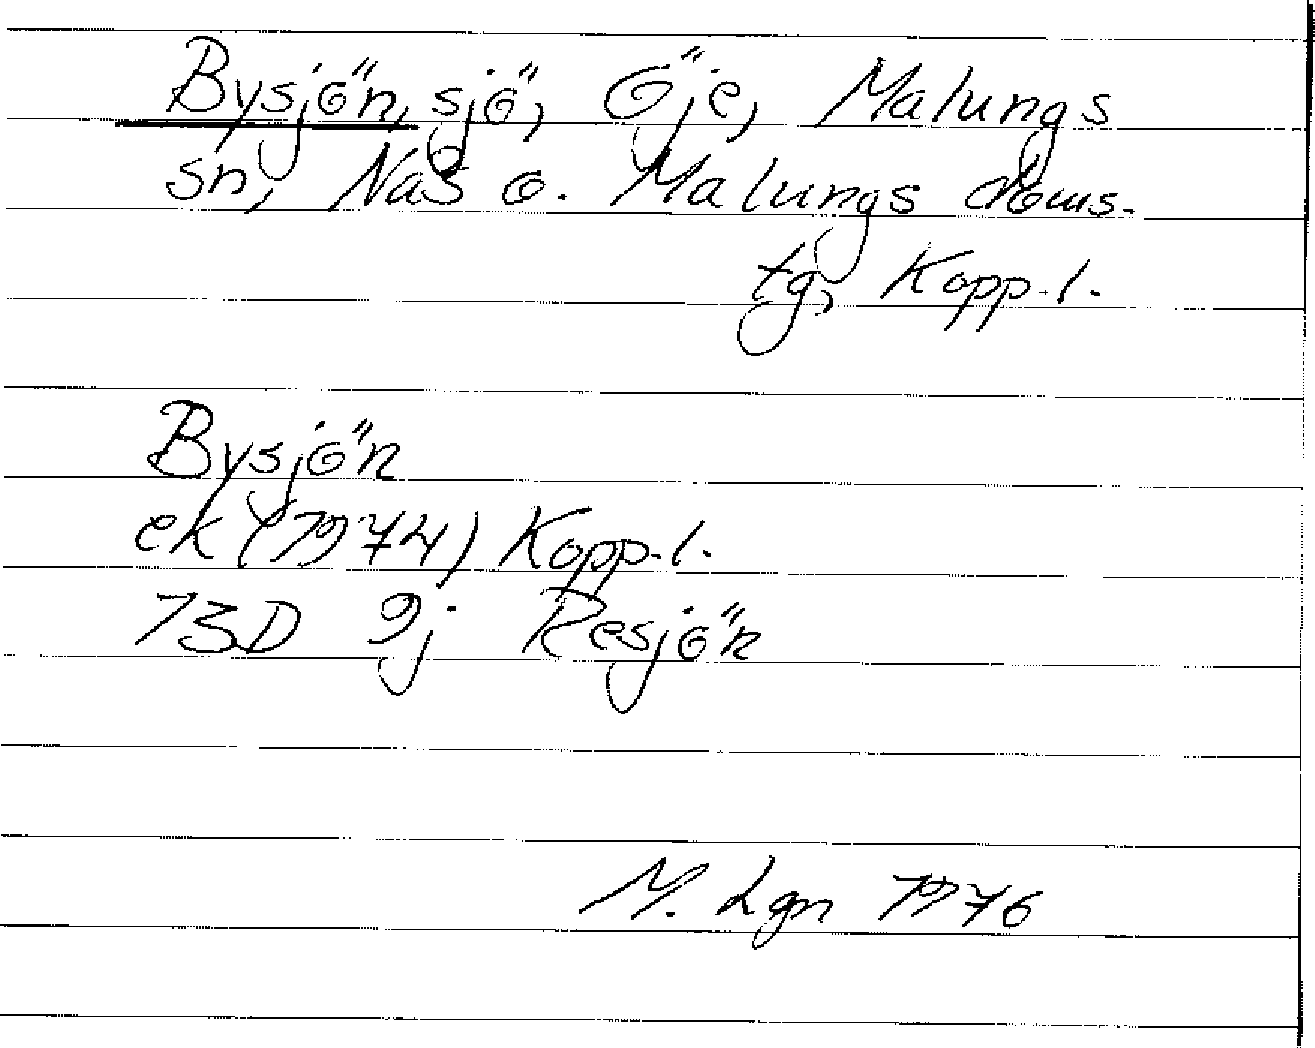 Bysjön, sjö, Öje, Malungs
sn, Nås o. Malungs doms.
tg, Kopp. l.
Bysjön
ek (1974) Kopp. l.
13D 9j Resjön
M. Lgn 1976